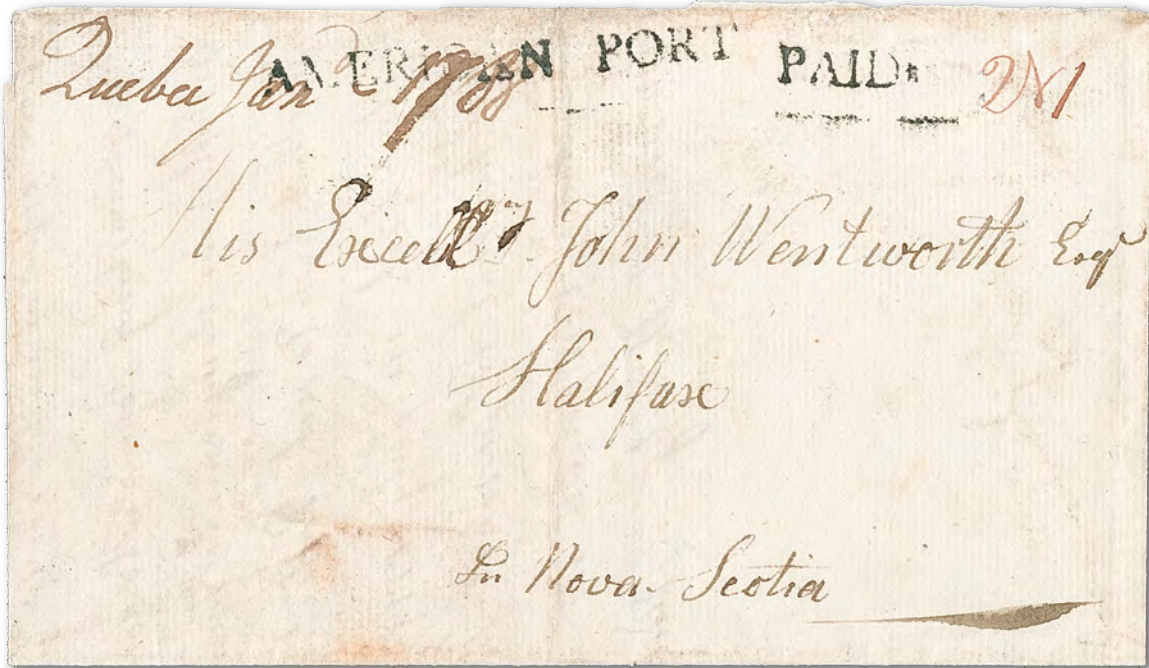 Quebec Jan 1788
AMERICAN PORT PAID
2N1
His Excellcy John Wentworth Esqr
Halifax
In Nova Scotia